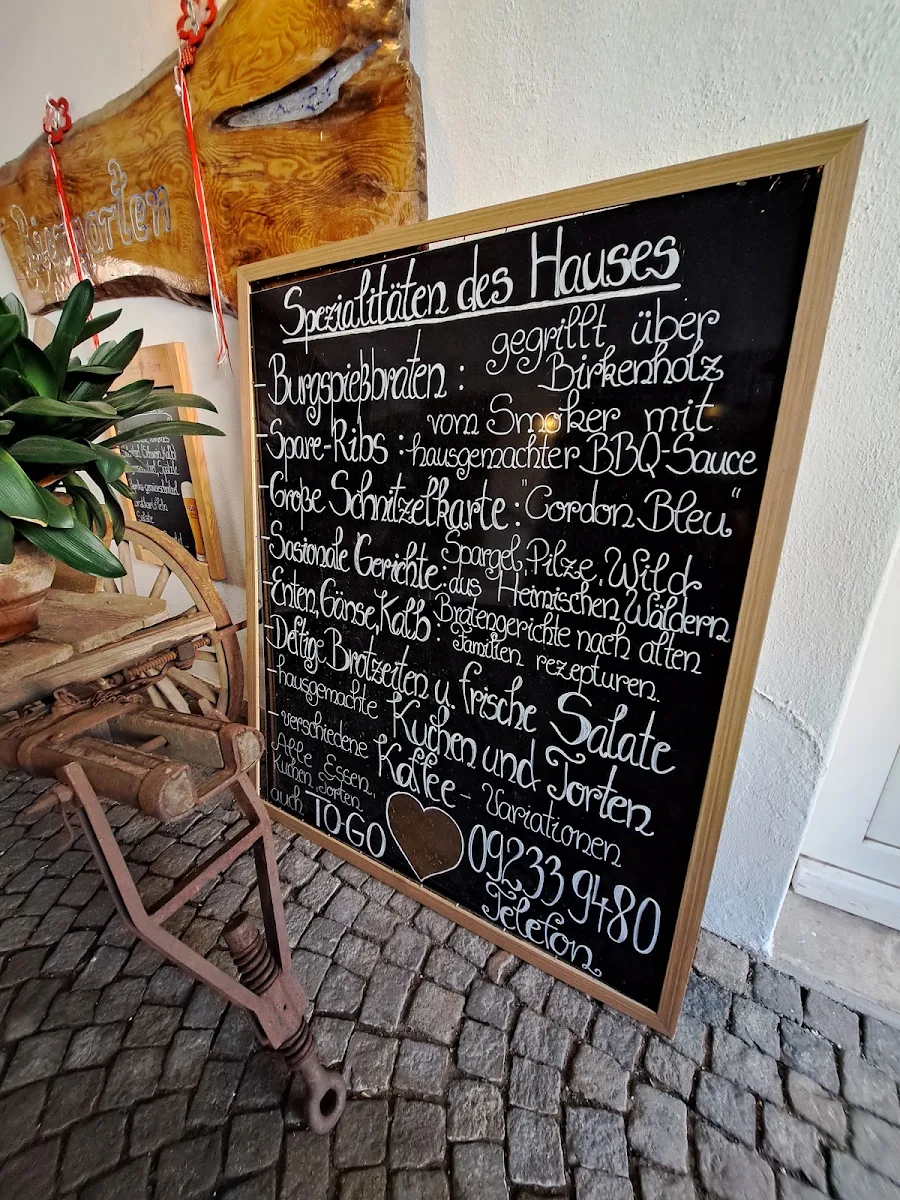 Biergarten
Spezialitäten des Hauses
- Burgspießbraten : gegrillt über
Birkenholz
- Spare-Ribs : vom Smoker mit
hausgemachter BBQ-Sauce
- Große Schnitzelkarte : "Cordon Bleu"
- Sasionale Gerichte : Spargel, Pilze, Wild
aus Heimischen Wäldern
- Enten, Gänse, Kalb : Bratengerichte nach alten
Familien rezepturen.
- Deftige Brotzeiten u. frische Salate
- hausgemachte Kuchen und Torten
- verschiedene Kaffee - Variationen
Alle Essen,
Kuchen, Torten,
auch TO GO
09233 9480
Telefon